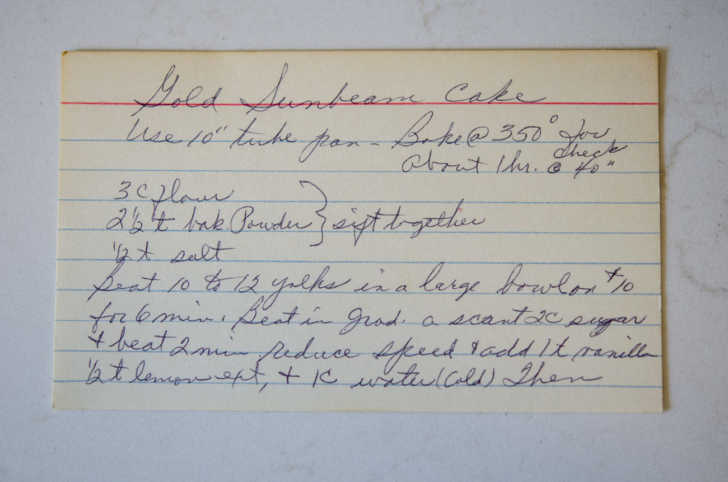 Gold Sunbeam Cake
Use 10" tube pan - Bake @ 350° for
about 1 hr. check @ 40"
3 c flour
2 1/2 t bak Powder } sift together
1/2 t salt
Beat 10 to 12 yolks in a large bowl on #10
for 6 min. Beat in grad. a scant 2c sugar
+ beat 2 min reduce speed & add 1t vanilla
1/2 t lemon ext, + 1c water (cold) Then